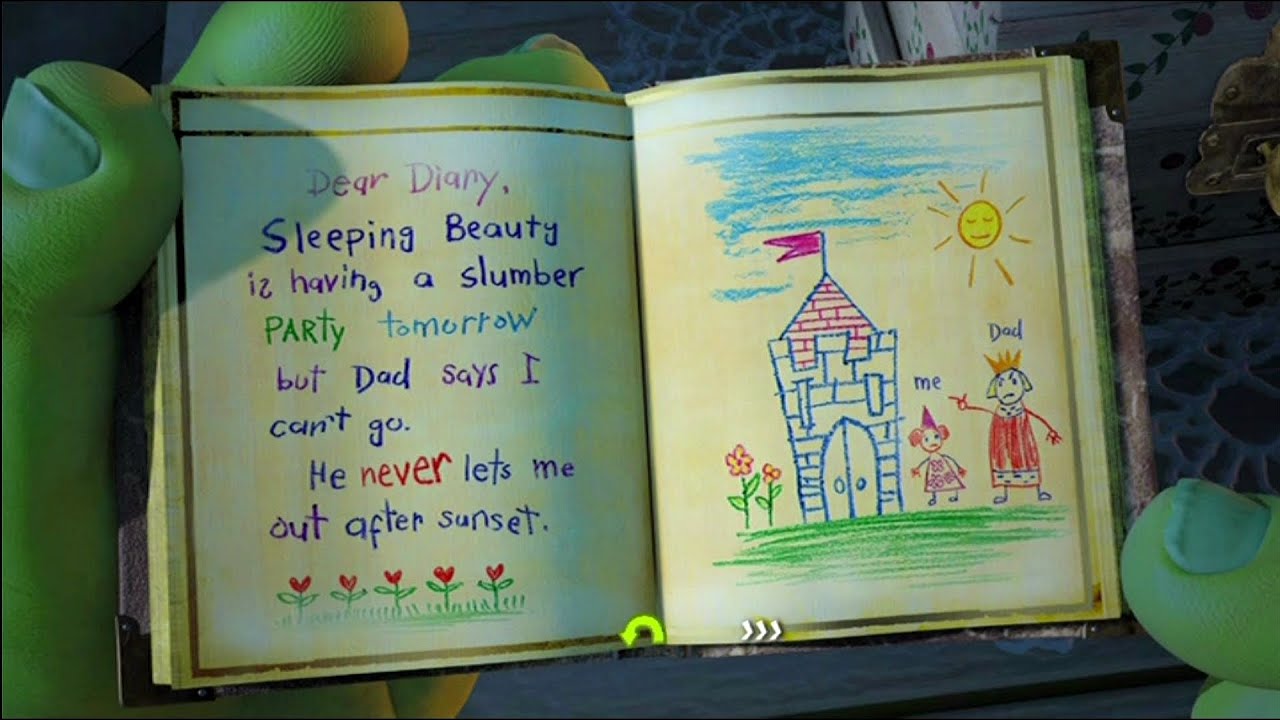 Dear Diary,
Sleeping Beauty
is having a slumber
PARTY tomorrow
but Dad says I
can't go.
He never lets me
out after sunset.
Dad
me